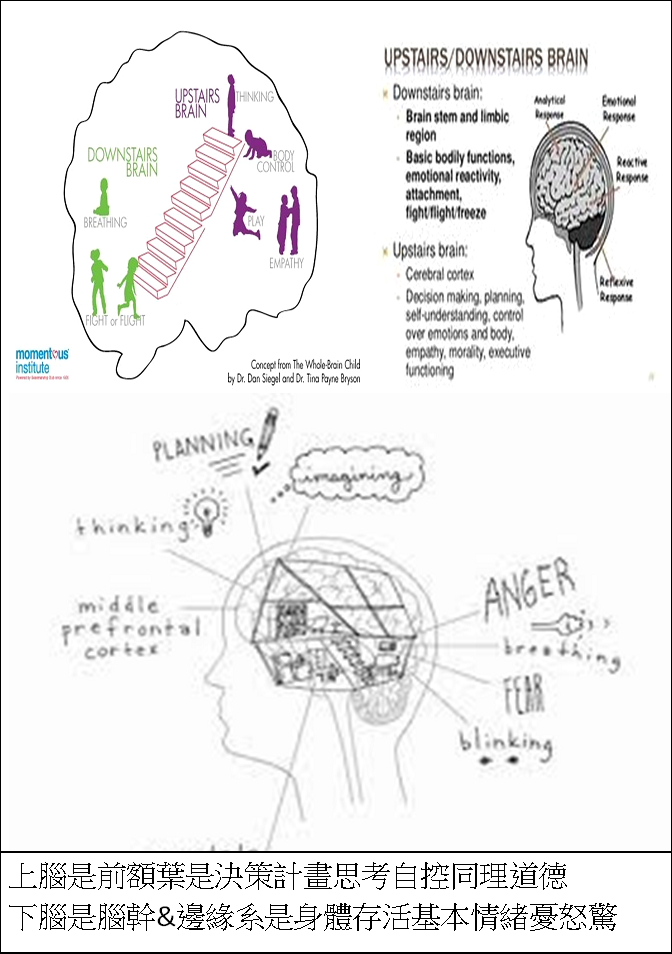 UPSTAIRS
BRAIN
THINKING
DOWNSTAIRS
BRAIN
BODY
CONTROL
BREATHING
PLAY
EMPATHY
FIGHT or FLIGHT
momentous
institute
Concept from The Whole-Brain Child
by Dr. Dan Siegel and Dr. Tina Payne Bryson
UPSTAIRS/DOWNSTAIRS BRAIN
Downstairs brain:
Brain stem and limbic
region
Basic bodily functions,
emotional reactivity,
attachment,
fight/flight/freeze
Upstairs brain:
Cerebral cortex
Decision making, planning,
self-understanding, control
over emotions and body,
empathy, morality, executive
functioning
Analytical
Response
Emotional
Response
Reactive
Response
Reflexive
Response
PLANNING
imagining
thinking
middle
prefrontal
cortex
ANGER
breathing
FEAR
blinking
上腦是前額葉是決策計畫思考自控同理道德
下腦是腦幹&邊緣系是身體存活基本情緒憂怒驚